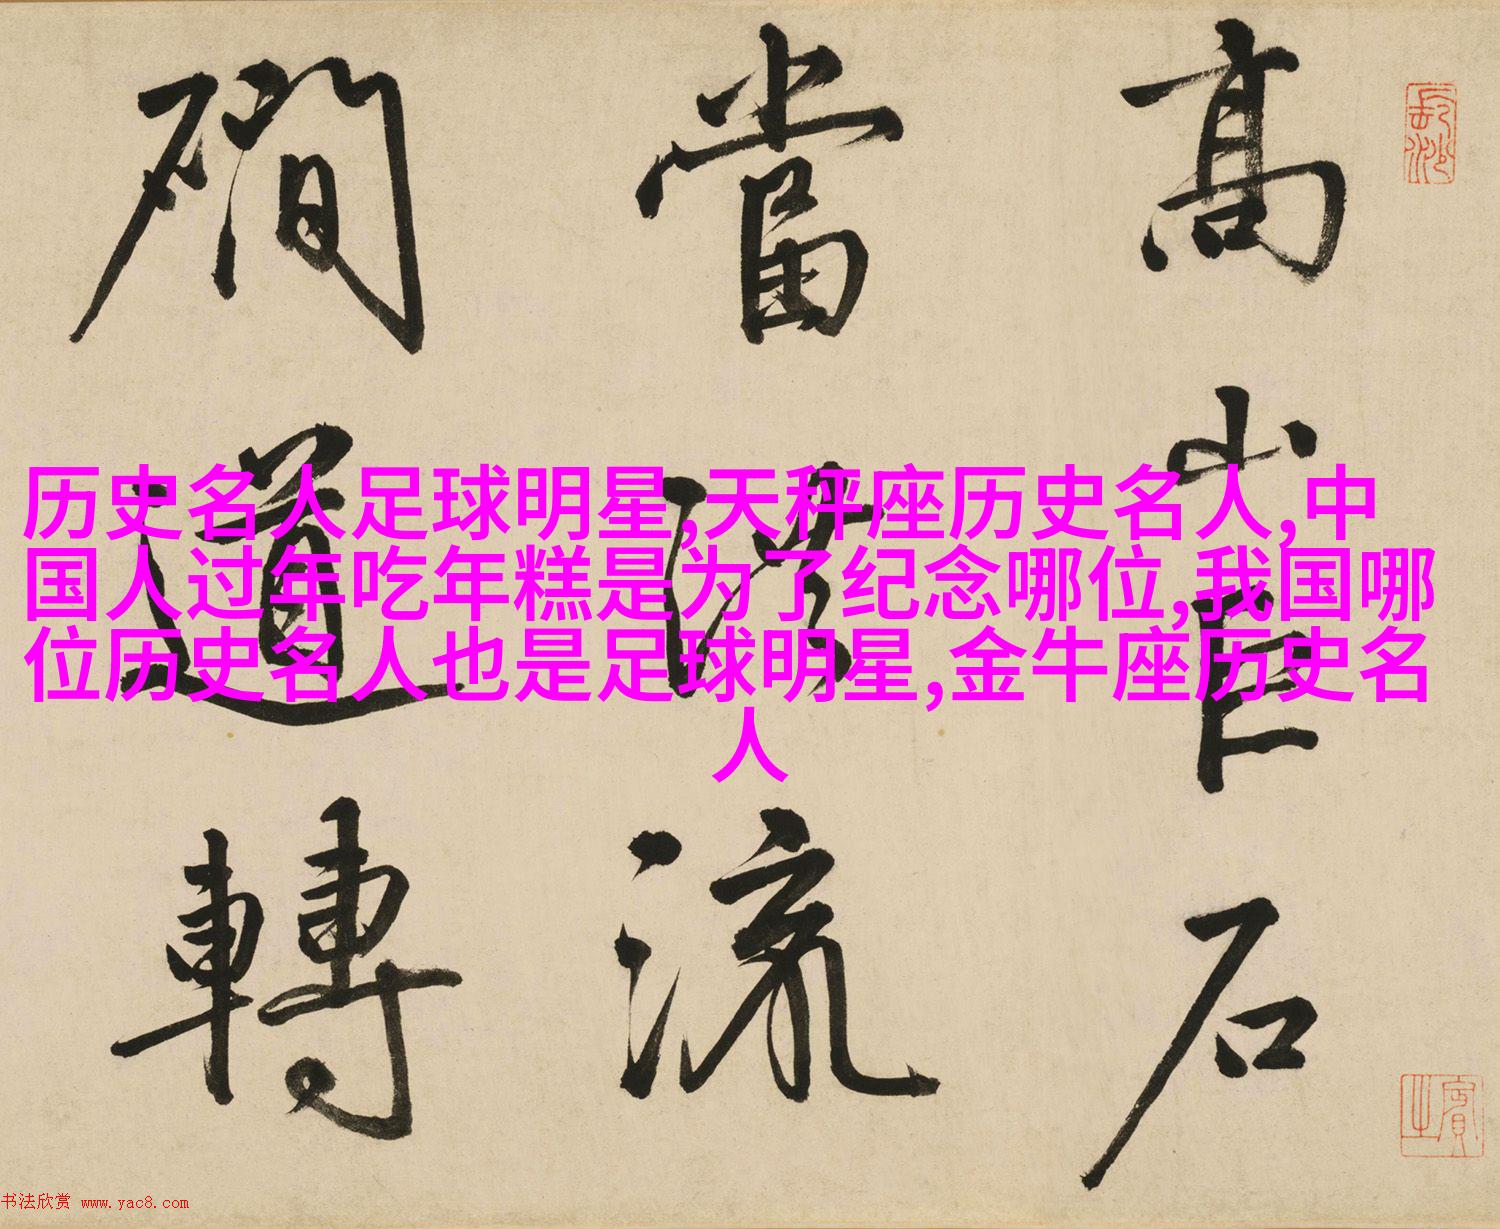 历史名人足球明星,天秤座历史名人,中
国人过年吃年糕是为了纪念哪位,我国哪
位历史名人也是足球明星,金牛座历史名
人
高官石
當流
澗道轉
长沙
书法欣赏 www.yac8.com